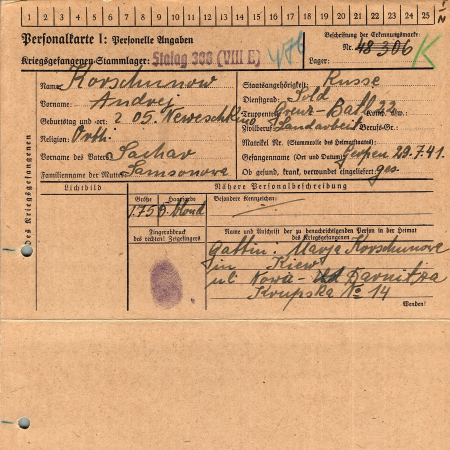 1 2 3 4 5 6 7 8 9 10 11 12 13 14 15 16 17 18 19 20 21 22 23 24 25
Personalkarte I: Personelle Angaben
Kriegsgefangenen-Stammlager: Stalag 308 (VIII E)
Beschriftung der Erkennungsmarke
Nr. 48306
Lager:
K
Des Kriegsgefangenen
Name: Korschunow
Vorname: Andrej
Geburtstag und -ort: 2 05. Neweschkino
Religion: Orth.
Vorname des Vaters: Sachar
Familienname der Mutter: Samsonova
Staatsangehörigkeit: Russe
Dienstgrad: Sold
Truppenteil: Grenz-Batl 22 Komp. usw.
Zivilberuf: Landarbeit Berufs-Gr.
Matrikel Nr. (Stammrolle des Heimatstaates)
Gefangennahme (Ort und Datum) 29.7.41.
Ob gesund, krank, verwundet eingeliefert: ges.
Lichtbild
Nähere Personalbeschreibung
Größe
Haarfarbe
Besondere Kennzeichen:
1.75 blond
Fingerabdruck
des rechten! Zeigefingers
Name und Anschrift der zu benachrichtigenden Person in der Heimat
des Kriegsgefangenen
Gattin: Korschunova
in Kiew
ul. Nowa- Darnitza
Krupska № 14
Wenden!